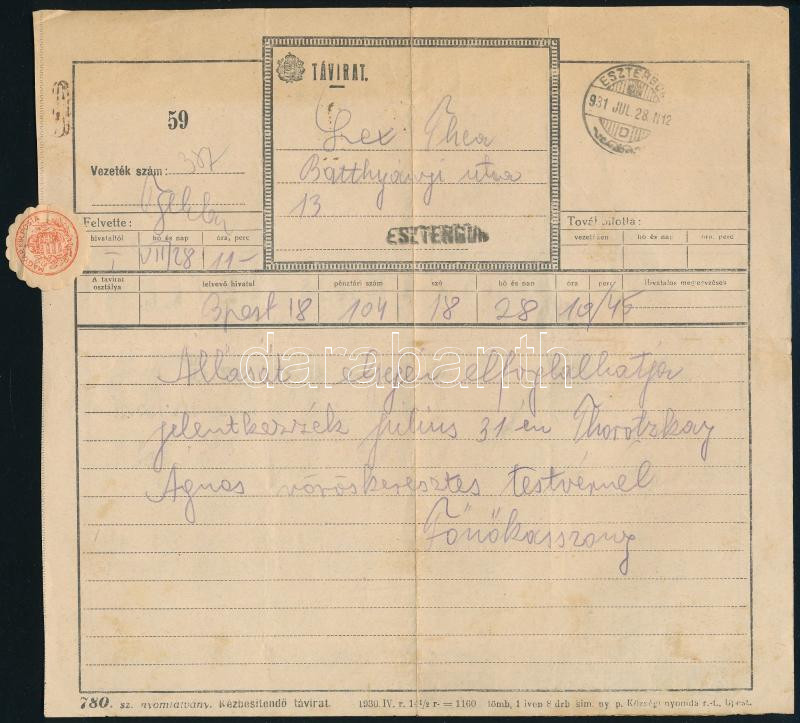 59
TÁVIRAT.
ESZTERGOM
931 JUL. 28. N12
D
Thea
Batthyányi utca
13
ESZTERGOM
Vezeték szám: 387
Felvette:
hivataltól
hó és nap
óra, perc
I
VII/28
11-
MAGYAR KIR. POSTA
Továbbította:
vezetéken
hó és nap
óra, perc
A távirat osztálya
felvevő hivatal
pénztári szám
szó
hó és nap
óra
perc
Hivatalos megjegyzések
Bpest 18
104
18
28
10/45
Állását elfoglalhatja
jelentkezzék július 31 én Thorotzkay
Ágnes vöröskeresztes testvérnél
Főnökasszony
darabanth
780. sz. nyomtatvány. Kézbesítendő távirat.
1930. IV. r. 14½ r- = 1160 tömb, 1 íven 8 drb sim. ny. p. Községi nyomda r.-t., Ujpest.